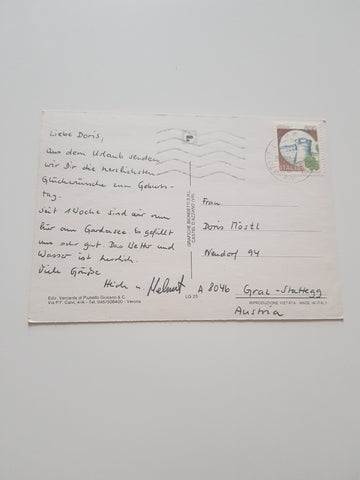 Liebe Doris,
aus dem Urlaub senden
wir Dir die herzlichsten
Glückwünsche zum Geburts-
tag.
Seit 1 Woche sind wir nun
hier am Gardasee. Es gefällt
uns sehr gut. Das Wetter und
Wasser ist herrlich.
Viele Grüße
Heide u. Helmut
Ediz. Vercante di Prunello Giuliano & C.
Via P.F. Calvi, 41/A - Tel. 045/506400 - Verona
GRAFICHE BIONDETTI S.R.L.
CASTEL D'AZZANO (VR)
LG 25
ITALIA
Frau
Doris Möstl
Neudorf 94
A 8046 Graz-Stattegg
RIPRODUZIONE VIETATA - MADE IN ITALY
Austria